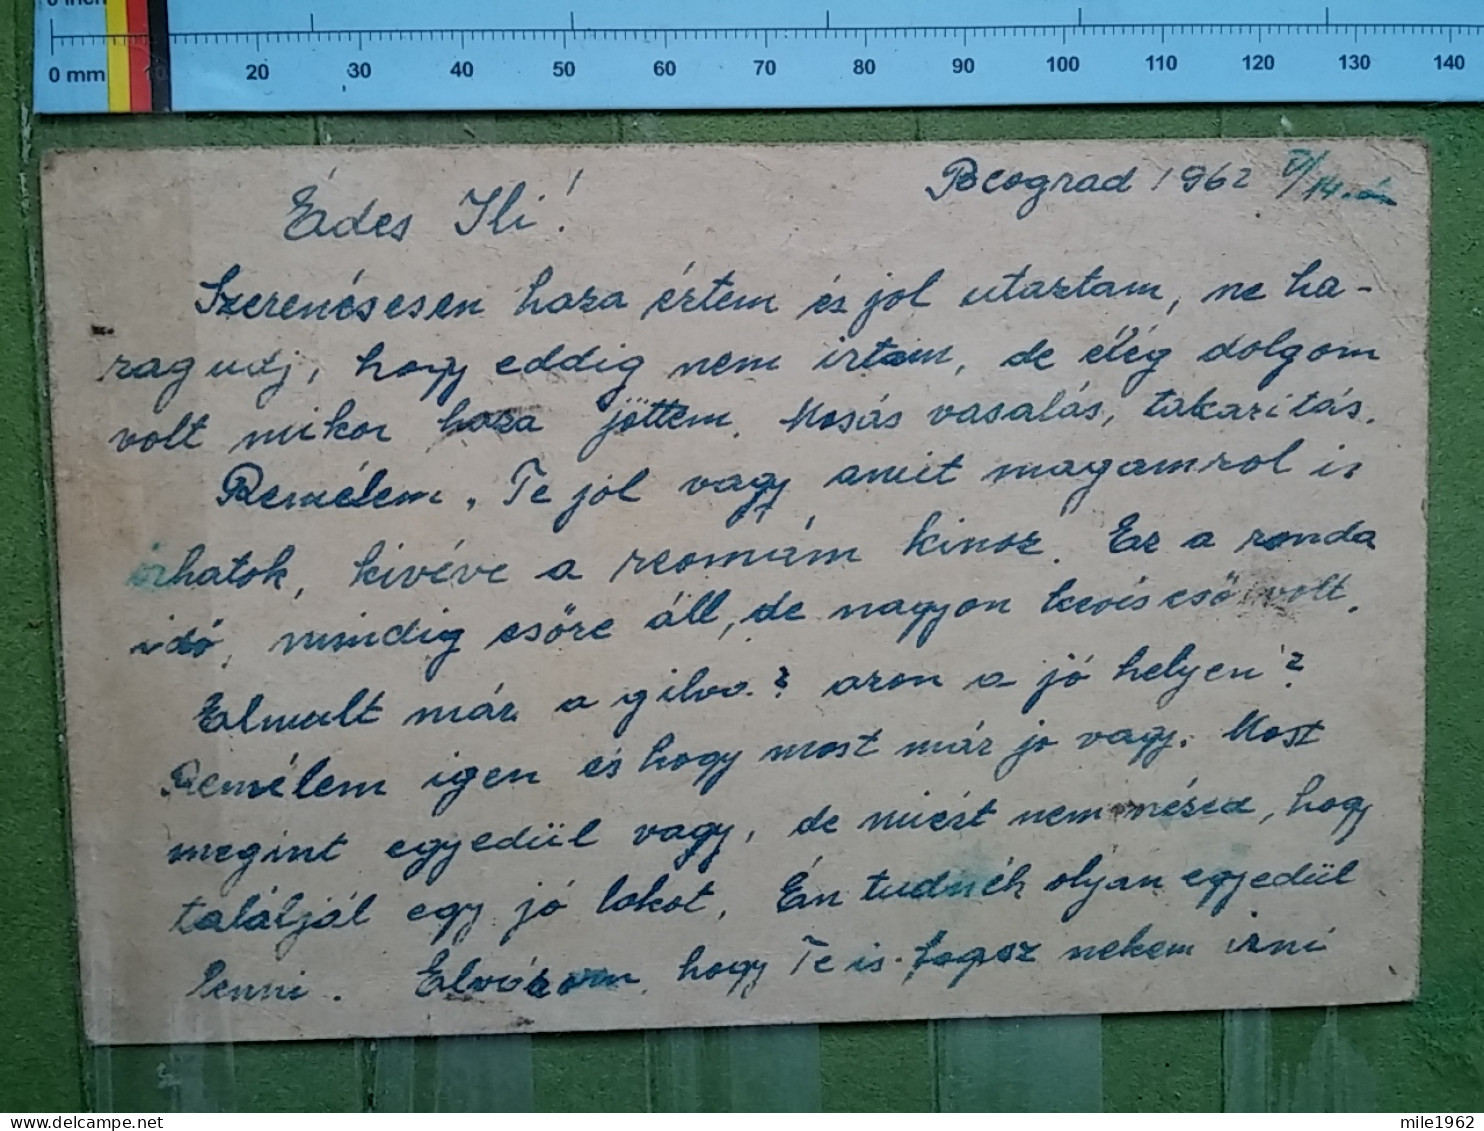 0 inch
0 mm 10 20 30 40 50 60 70 80 90 100 110 120 130 140
Beograd 1962 V/14.-én
Édes Ili!
Szerencsésen haza értem és jol utaztam, ne ha-
ragudj, hogy eddig nem irtam, de elég dolgom
volt mikor haza jöttem. Mosás vasalás, takaritás.
Remélem, Te jól vagy amit magamrol is
irhatok, kivéve a reomám kinoz. Ez a ronda
idő, mindig esőre áll, de nagyon kevés eső volt.
Elmult már a gilva? azon a jó helyen?
Remélem igen és hogy most már jo vagy. Most
megint egyedül vagy, de miért nem nézed, hogy
találjál egy jó lakot. Én tudnék olyan egyedül
lenni. Elvárom, hogy Te is fogsz nekem irni
www.delcampe.net
mile1962